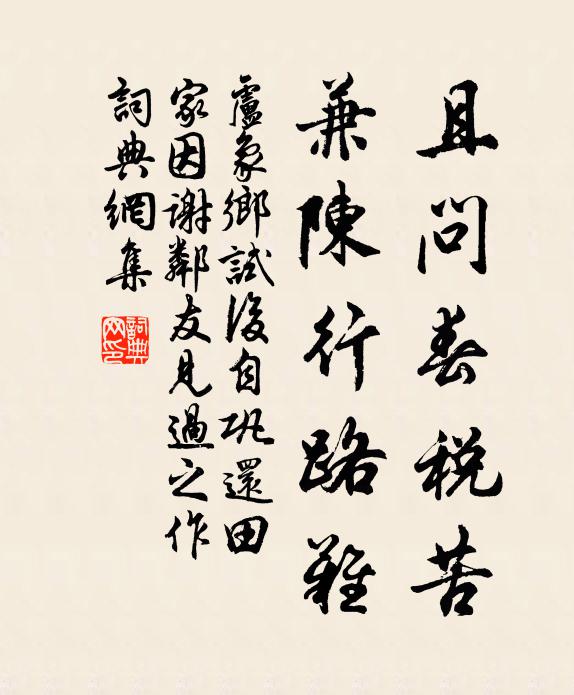 且問春税苦
兼陳行路難
盧象鄉試後自鞏還田
家因謝鄰友見過之作
詞典網集
詞典网印